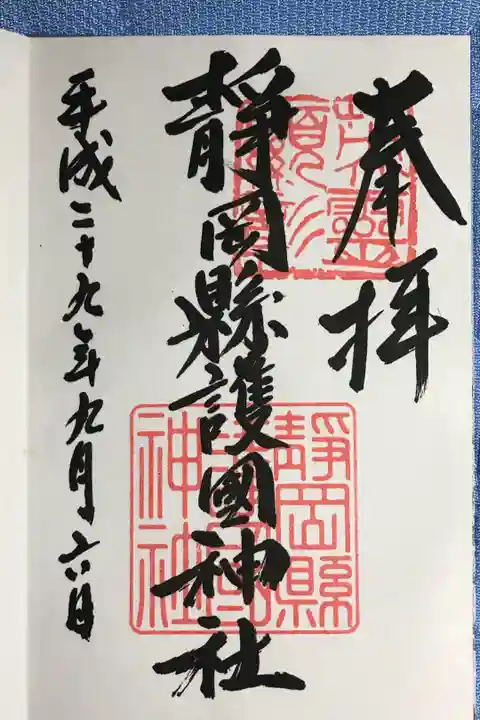 奉拝
靜岡縣護國神社
平成二十九年九月六日
靜岡縣護國神社